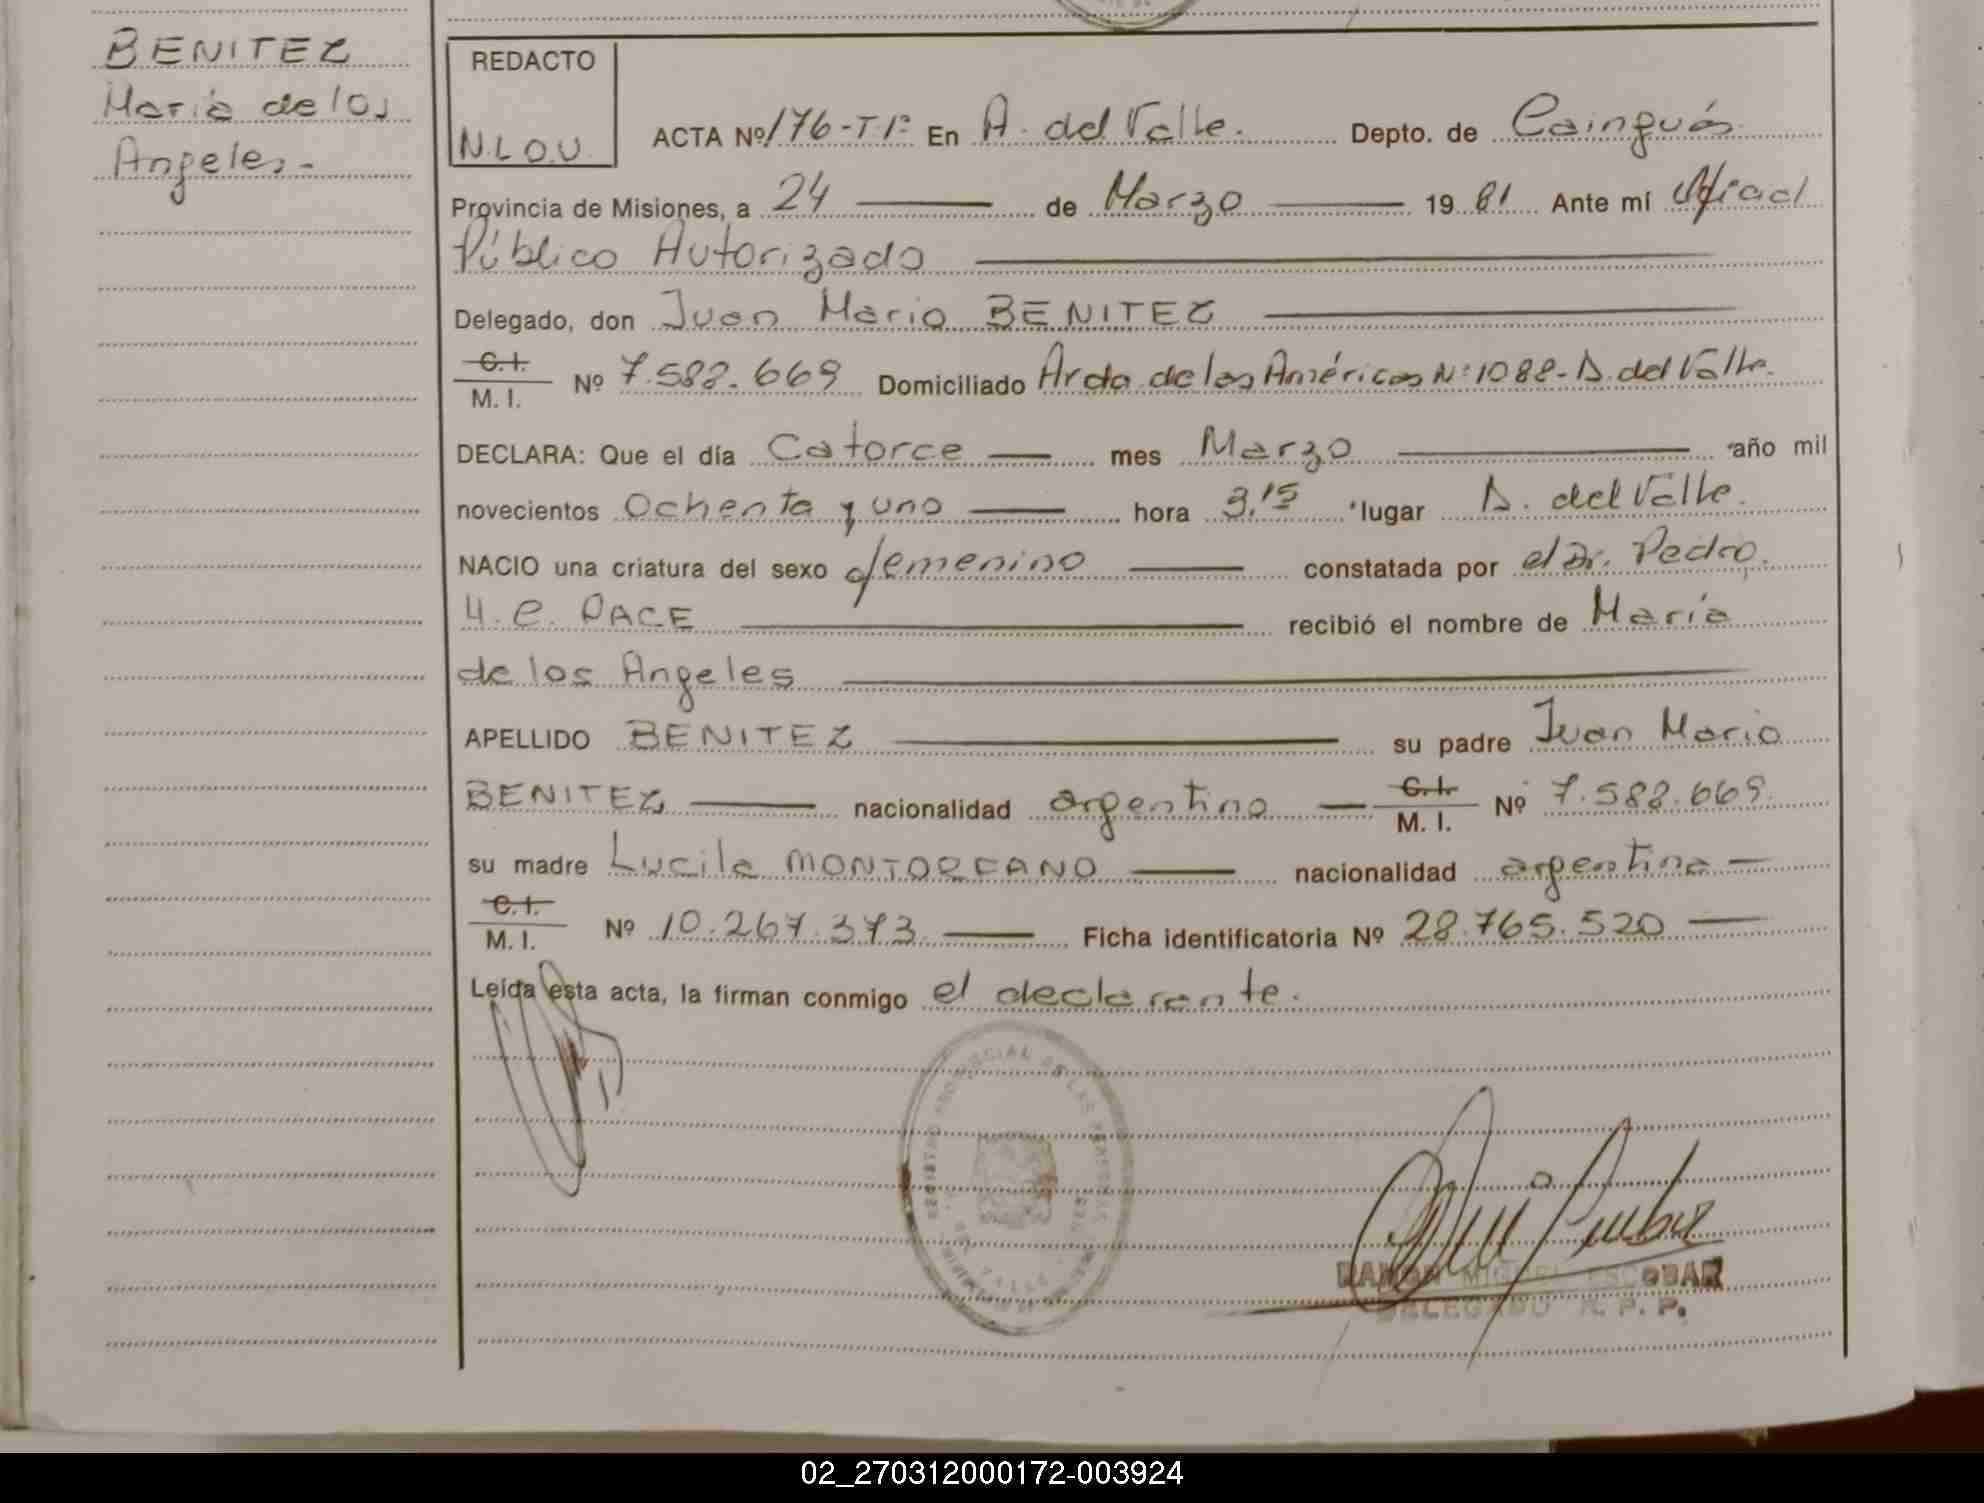 BENITEZ
María de los
Angeles.-
REDACTO
N.L.O.U.
ACTA Nº 176-T-1º En A. del Valle. Depto. de Cainguás
Provincia de Misiones, a 24 de Marzo 19 81 Ante mí Oficial
Público Autorizado
Delegado, don Juan Mario BENITEZ
C.I.
M. I. Nº 7.588.669 Domiciliado Avda. de las Américas Nº 1088- A. del Valle.
DECLARA: Que el día Catorce mes Marzo año mil
novecientos Ochenta y uno hora 3,15 lugar A. del Valle.
NACIO una criatura del sexo femenino constatada por el Dr. Pedro
H. C. PACE recibió el nombre de María
de los Angeles
APELLIDO BENITEZ su padre Juan Mario
BENITEZ nacionalidad argentino C.I. M. I. Nº 7.588.669.
su madre Lucila nacionalidad argentina
C.I.
M. I. Nº 10.267.373 Ficha identificatoria Nº 28.765.520
Leída esta acta, la firman conmigo el declarante.
REGISTRO PROVINCIAL DE LAS PERSONAS
RAMON MIGUEL ESCOBAR
DELEGADO R. P. P.
02_270312000172-003924